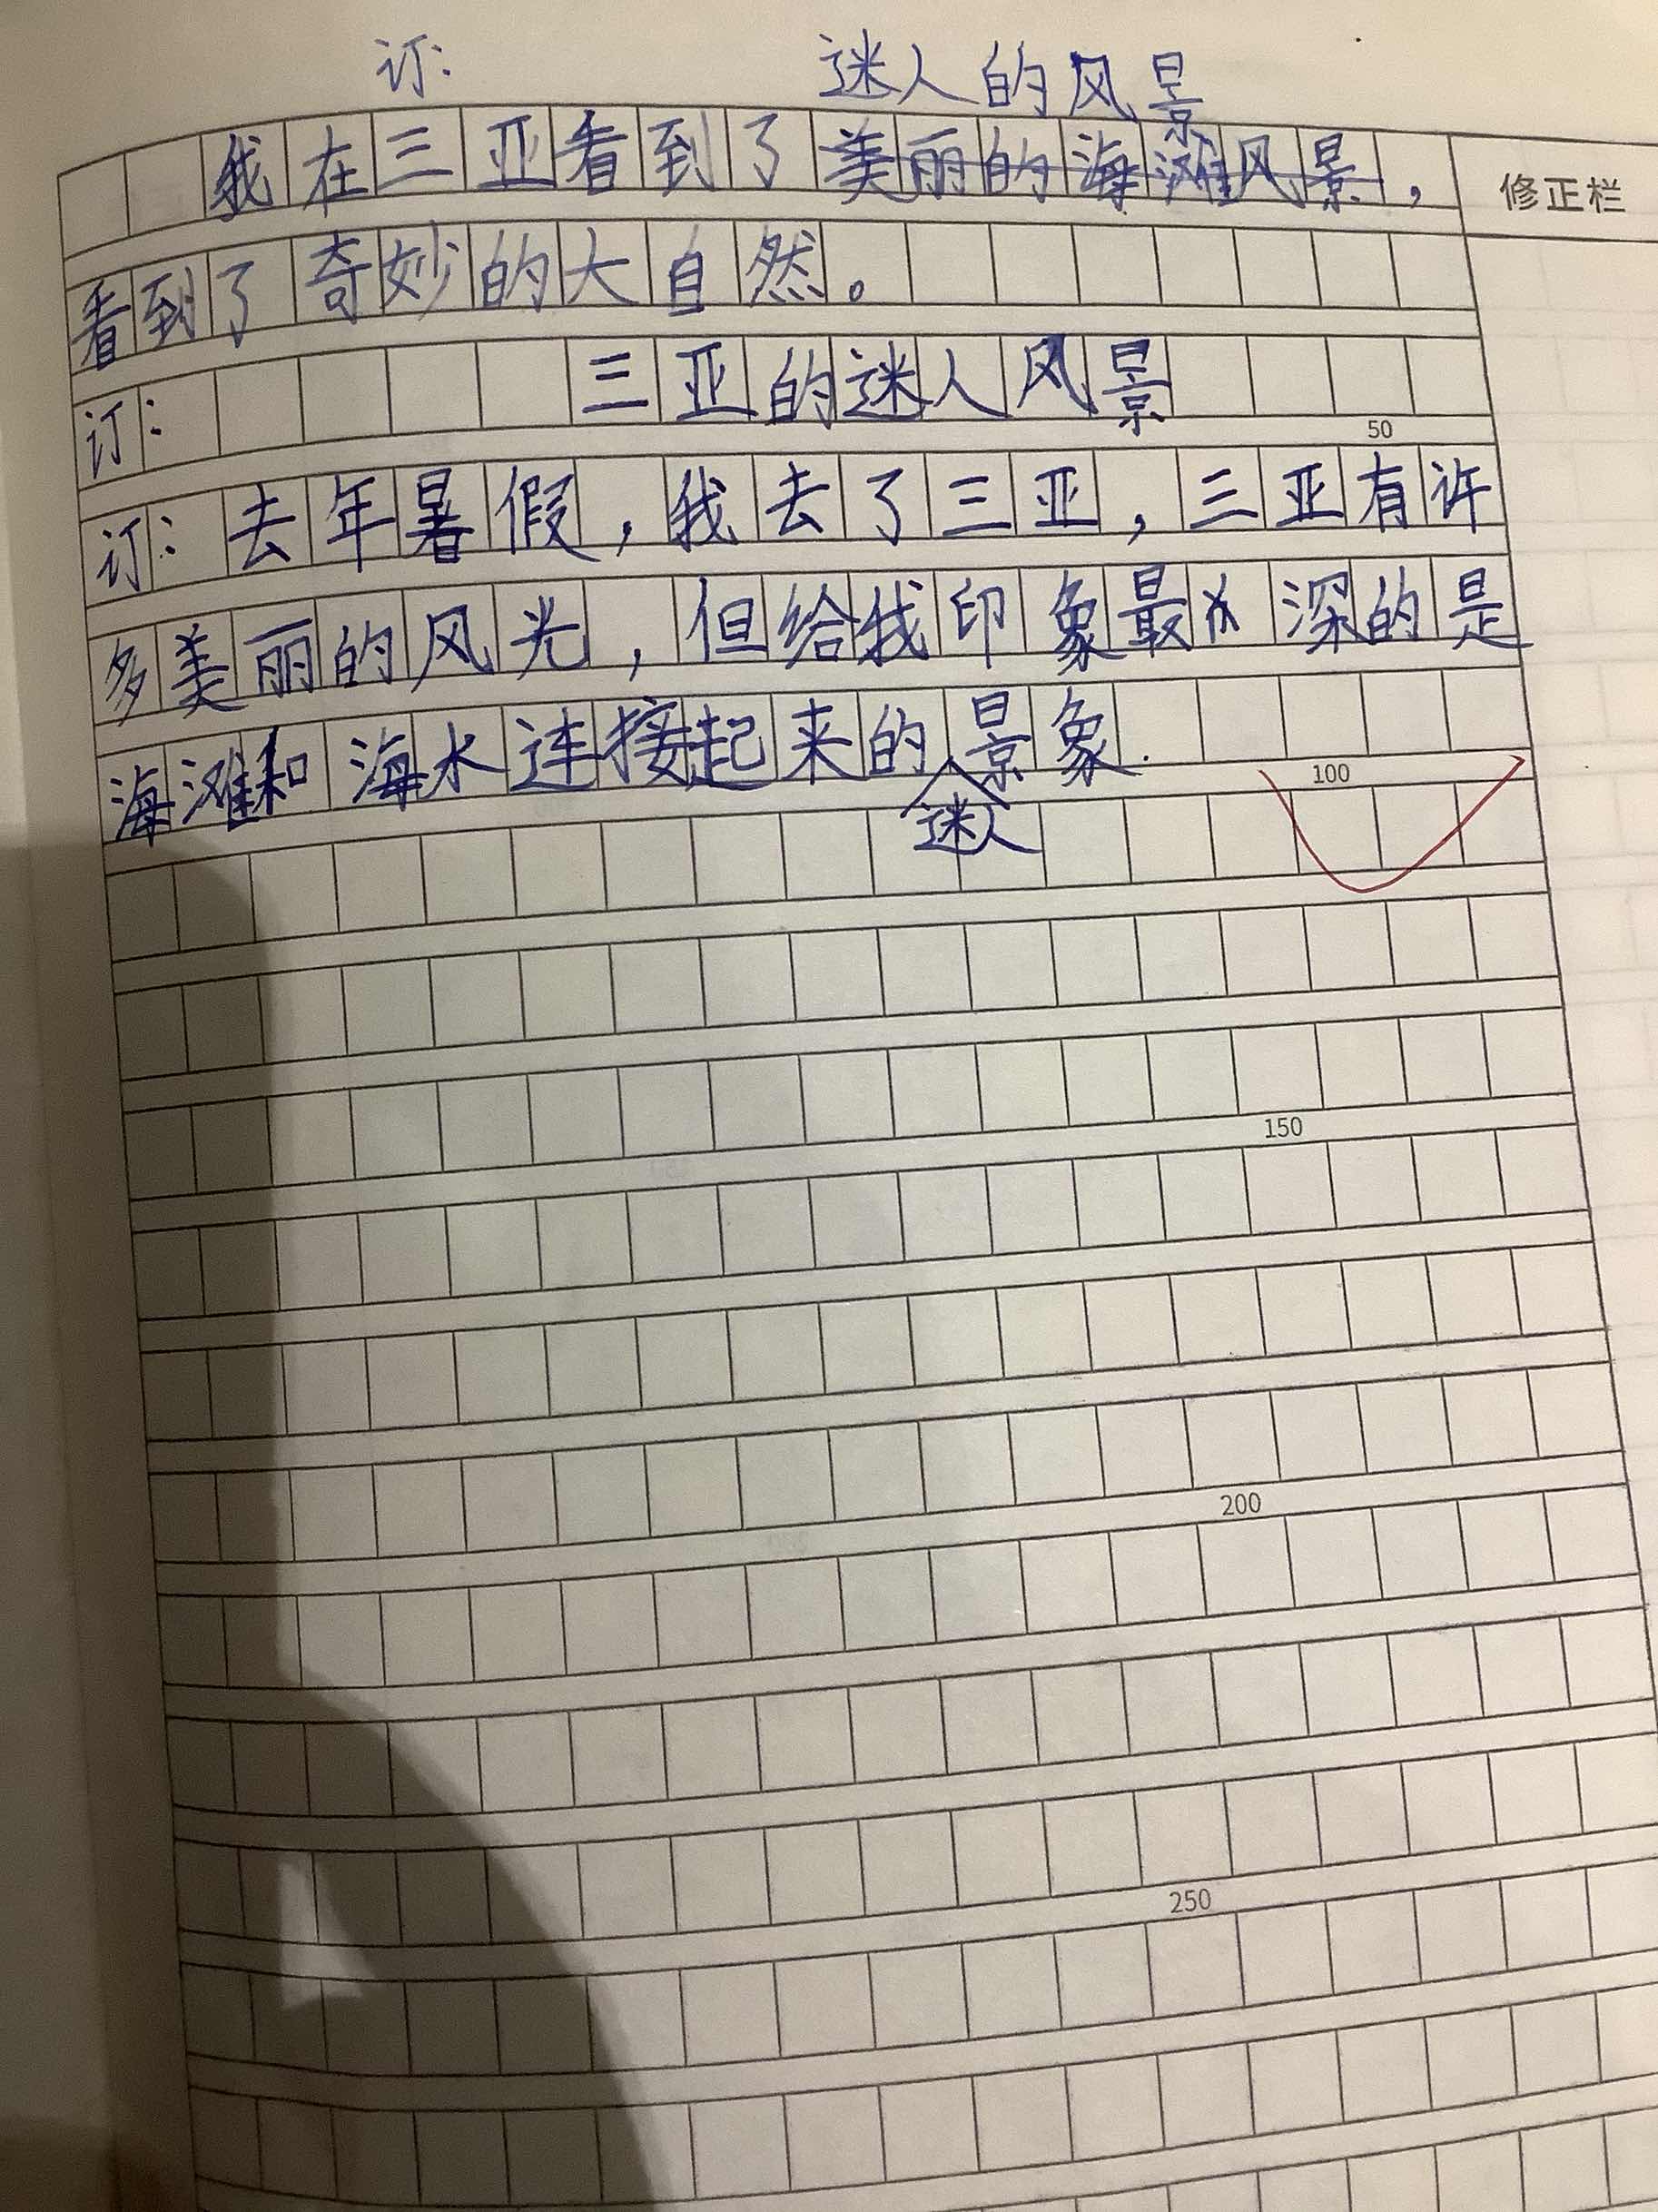 订： 迷人的风景
我在三亚看到了美丽的海滩风景，
修正栏
看到了奇妙的大自然。
订： 三亚的迷人风景
50
订：去年暑假，我去了三亚，三亚有许
多美丽的风光，但给我印象最深的是
海滩和海水连接起来的景象.
100
迷人
150
200
250